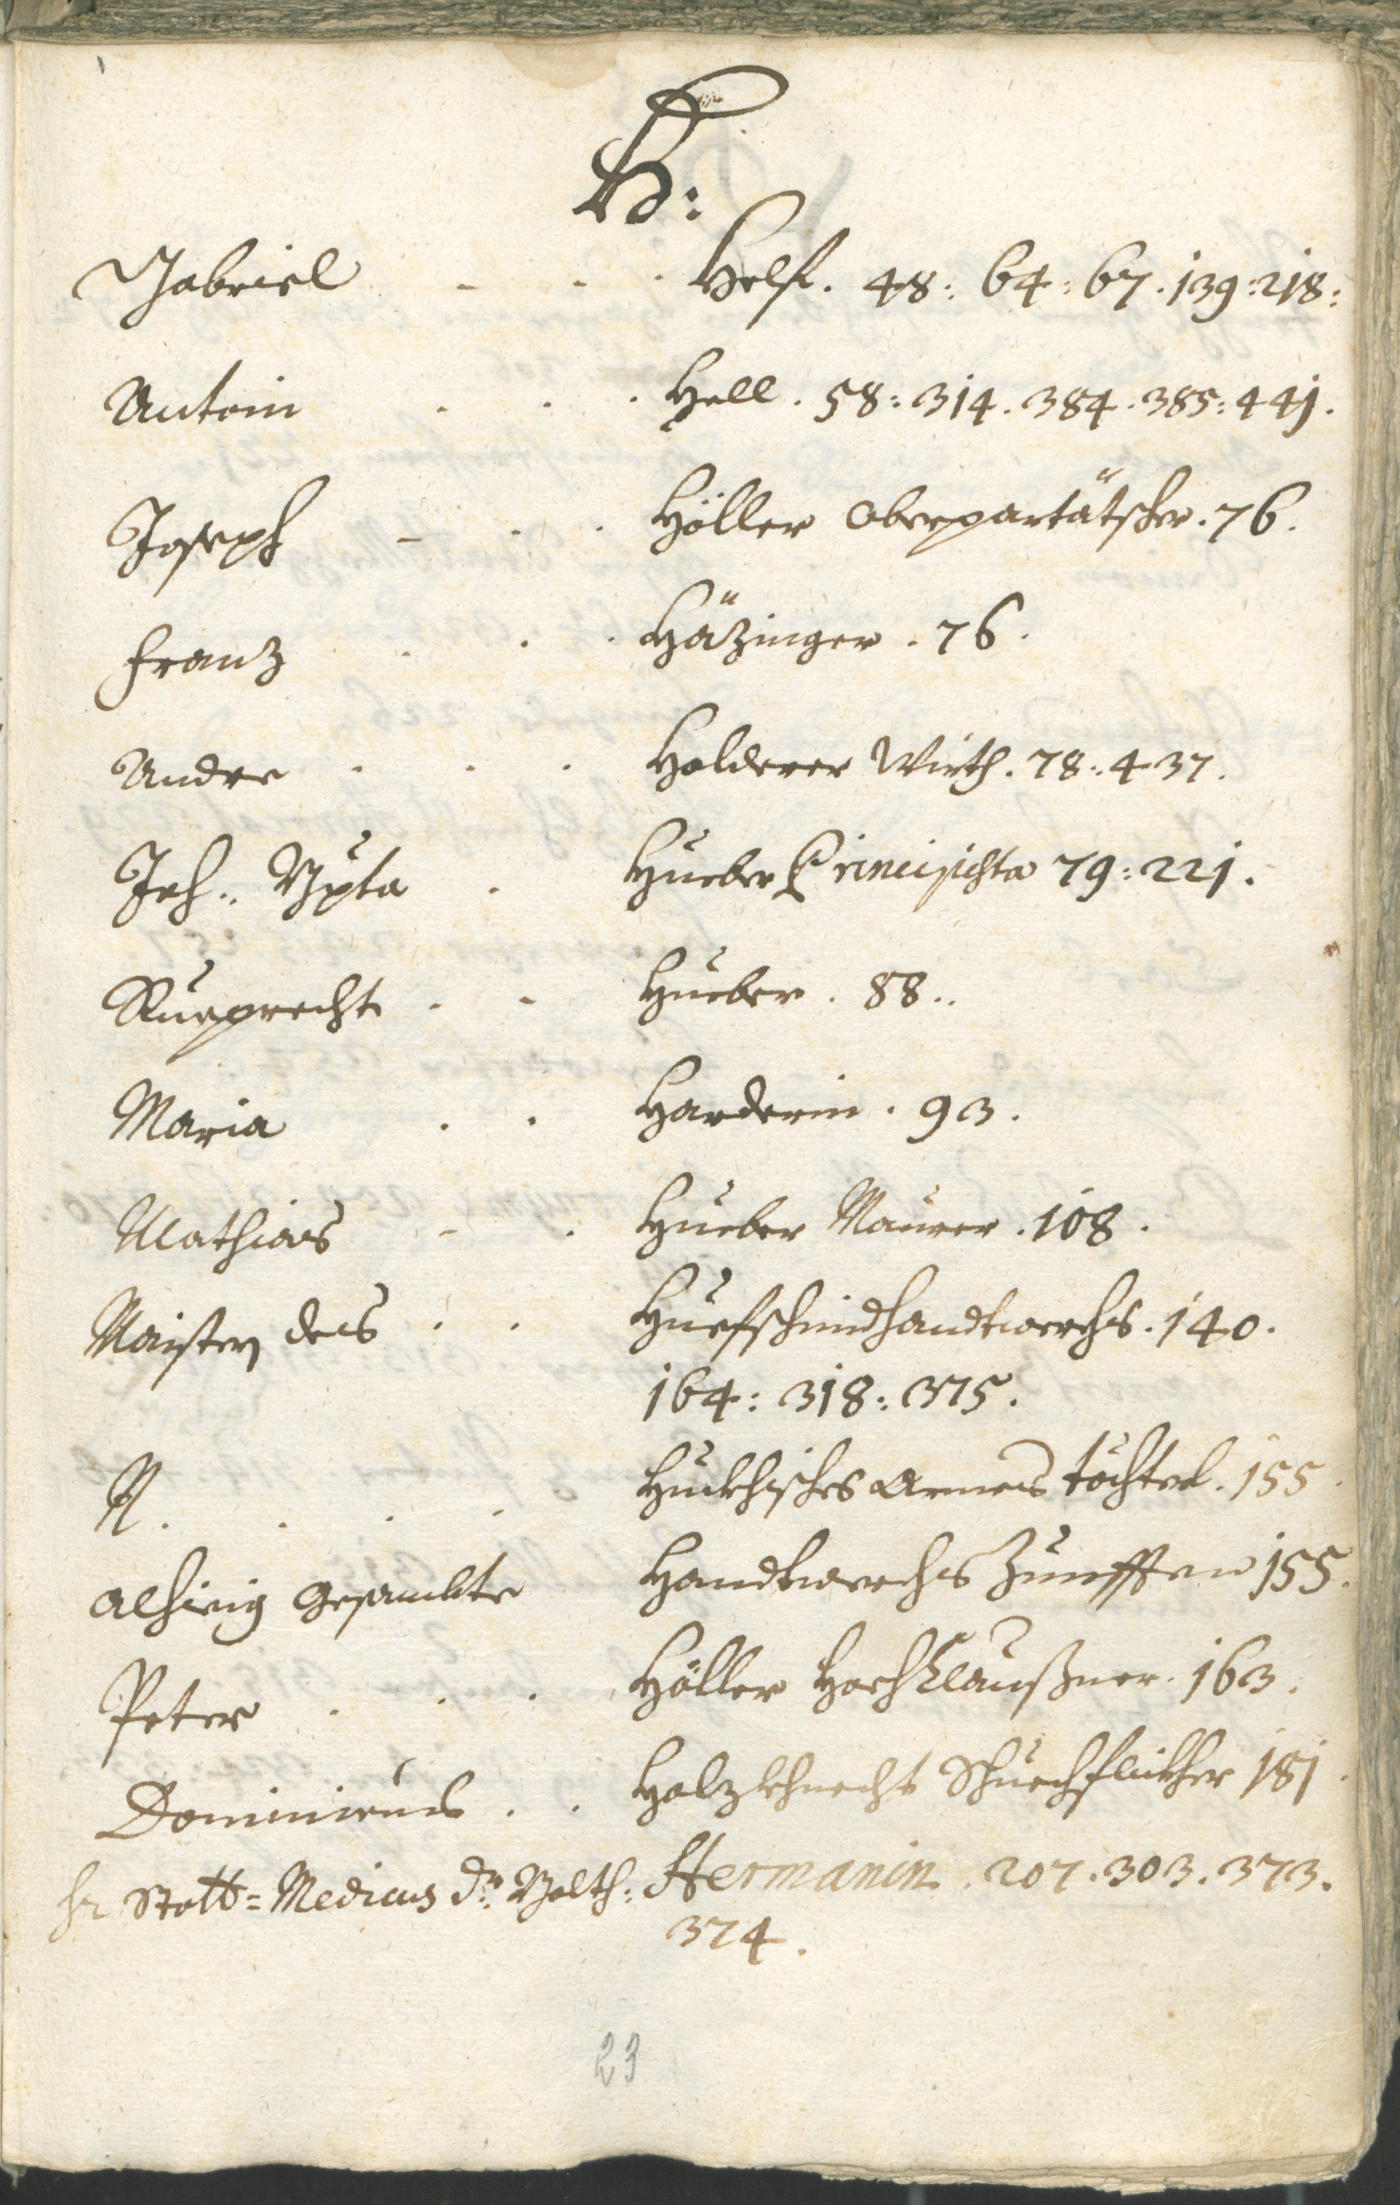 H:
Gabriel - . . Helf. 48: 64: 67. 139: 218:
Antoni . . . Hell. 58: 314. 384. 385: 441.
Joseph - . . Höller Oberpartätscher. 76.
Franz . . . Häzinger. 76.
Andre . . . Halderer Wirth. 78: 437.
Joh: Bpta . Hueber Principista 79: 221.
Rueprecht . - Hueber. 88..
Maria . . Harderin. 93.
Mathias - . Hueber Maurer. 108.
Maister des . . Huefschmidhandtwerchs. 140.
164: 318: 375.
N. . . . armes töchterl. 155.
alhieig gesambte Handtwerchs Zunfften 155.
Peter . . . Höller Hochklaußner. 163.
Dominicus . . Holzkhnecht Schuechflickher 181.
Hr Statt=Medicus Dr. Balth: Hermanin. 207. 303. 373.
374.
23